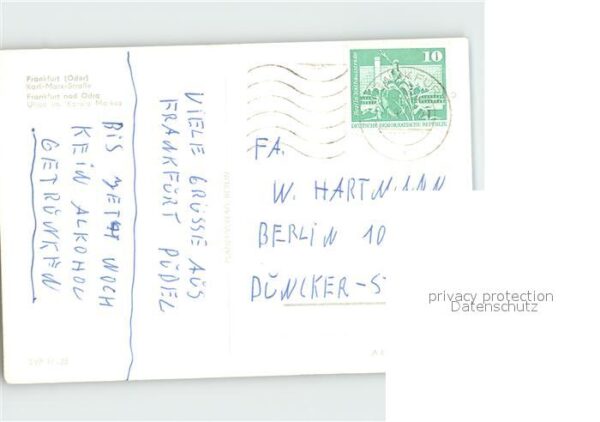 Frankfurt (Oder)
Karl-Marx-Straße
Frankfurt nad Odrą
BIS JETZT NOCH
KEIN ALKOHOL
GETRUNKEN
VIELE GRÜSSE AUS
FRANKFURT PÜDEL
10
DEUTSCHE DEMOKRATISCHE REPUBLIK
FA.
W. HARTMANN
BERLIN 10
DÜNCKER-S
privacy protection
Datenschutz